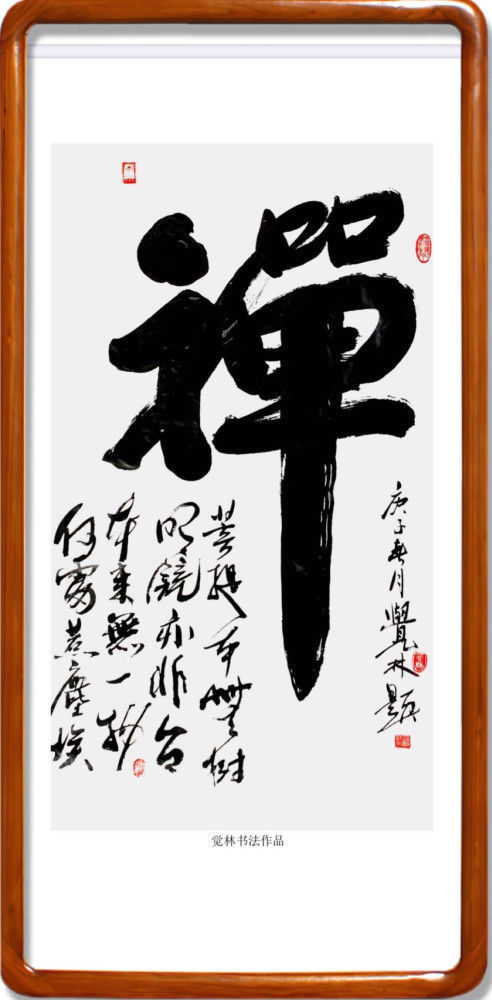 禪
菩提本無樹
明鏡亦非台
本來無一物
何處惹塵埃
庚子春月覺林題
觉林书法作品